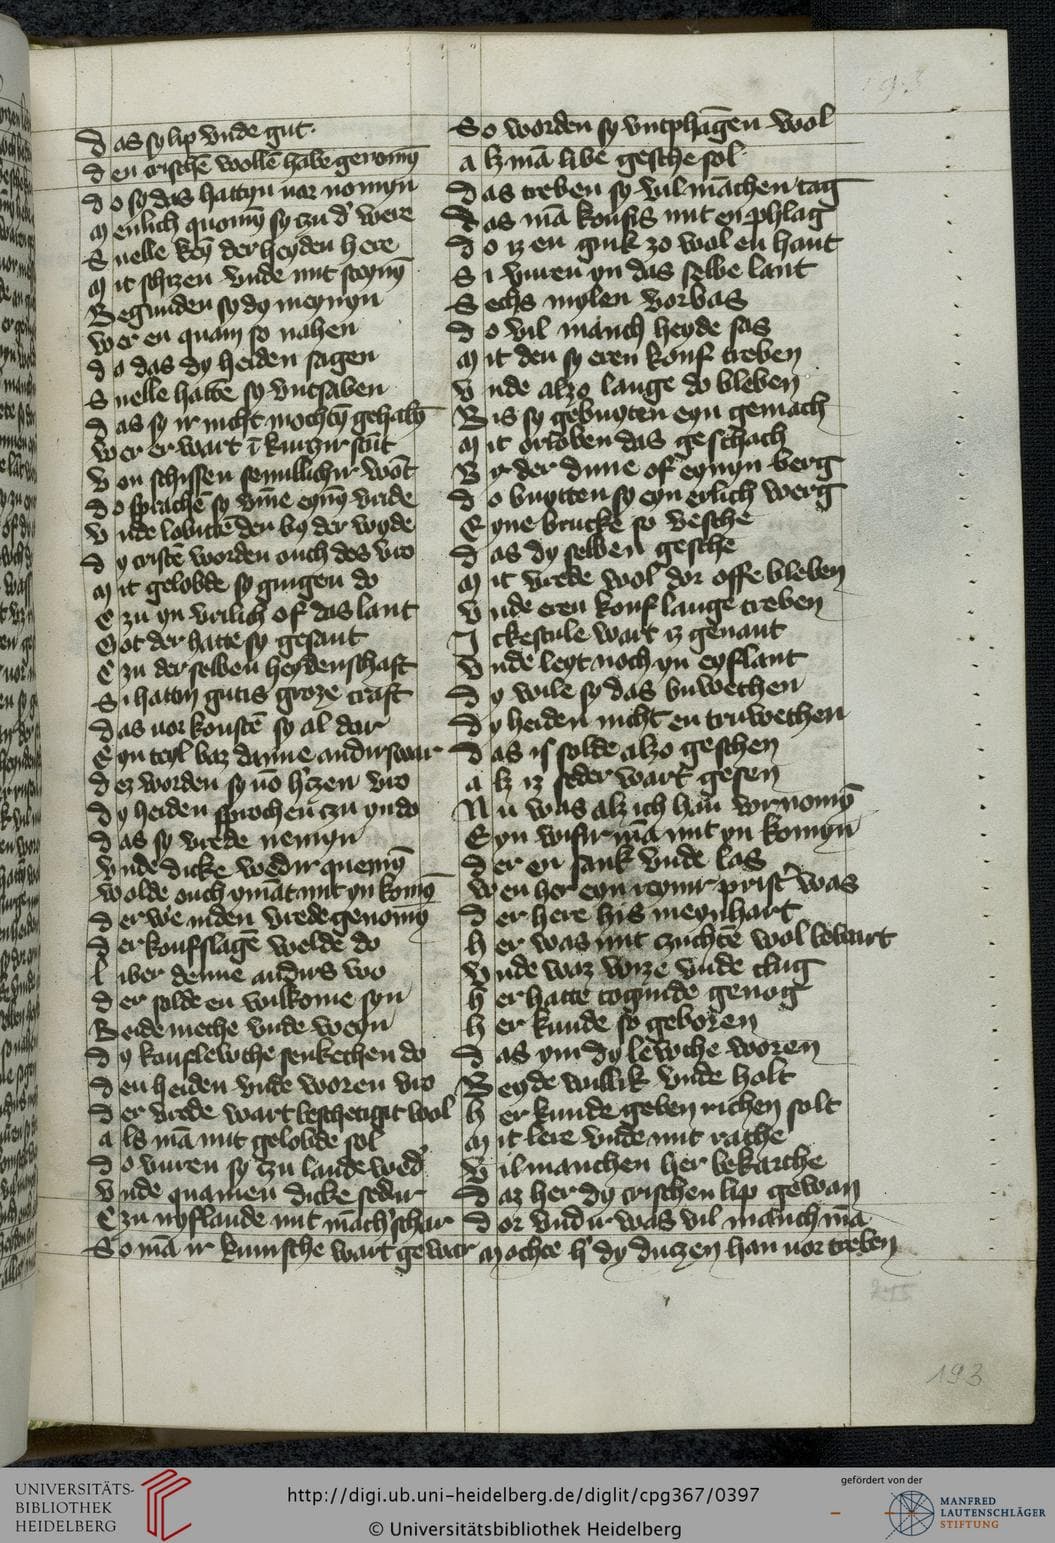 193
D as sy lip vnde gut
d en cristchē wollē habē genomȳ
d o sy das hattyn vor nomyn
m enlich quomȳ sy czu d' were
S nelle kēȳ der heyden here
M it schizen vnde mit steynȳ
B egunden sy dy meynyn
w er en quam so nahen
d o das dy heiden sagen
S nelle hattē sy vntsaben
d as sy ir nicht mochtȳ gehabȳ
w er er wart ī kurczir stūt
v on schissen semllichir wōt
d o sprachē sy vm̄e eynȳ vrede
v nde lobittē den by der wyde
d y cristē worden ouch des vro
m it gelobde sy gingen do
C zu yn vrilich of das lant
G ot der hatte sy gesant
C zu der selben heydenschaft
S i hattin gutis groze craft
d as vor kouftē sy al dar
E yn teyl baz danne andirswar
d ez worden sy vō h'czen vro
d y heiden sprochen czu yn do
d as sy vrede nemyn
v nde dicke wedir quemȳ
w olde ouch ymāt mit yn komȳ
d er we in den vrede genomȳ
d er koufslagē welde do
l iber denne andirs wo
d er solde en wilkome syn
B eide methe vnde weyn
d y kouflewthe senkethen do
d en heiden vnde woren vro
d er vrede wart beschetigit wol
a ls mā mit gelobde sol
d o vuren sy czu lande wed'
v nde quamen dicke sedir
C zu nyflande mit māch' schar
S o mā ir kumfthe wart gewar
S o worden sy vntphāgen wol
a lz mā libē gesche sol
d as treben sy vil māchen tag
d as mā koufis mit en phlag
d o iz en gink zo wol en hant
S i vuren yn das selbe lant
S echs mylen vorbas
d o vil manch heyde sas
m it den sy eren kouf treben
v nde alzo lange do bleben
B is sy gebuyten eyn gemach
m it orloben das geschach
B y der dune of eynyn berg
d o buytten sy eyn erlich werg
E yne brucke so vesche
d as dy selben gesche
m it vrede wol dor offe bleben
v nde eren kouf lange treben
I ckescule wart iz genant
v nde leyt noch yn eyflant
d y wile sy das buwethen
d y heiden nicht en truwethen
d as is solde alzo geschen
a lz iz seder wart gesen
N u was alz ich han vornomȳ
E yn wisir mā mit yn komyn
d er en sank vnde las
w en her eyn reynir prist' was
d er here his meynhart
h er was mit zuchtē wol bebart
v nde waz wize vnde clug
h er hatte togunde genog
h er kunde so geboren
d as ym dy lewthe woren
B eyde willik vnde holt
h er kunde geben richen solt
m it lere vnde mit rathe
v il manchen her bekarthe
d az her dy cristchen lip gewan
d or vndir was vil manch mā
m ochte h' dy duczen han vor treben
193
UNIVERSITÄTS-
BIBLIOTHEK
HEIDELBERG
http://digi.ub.uni-heidelberg.de/diglit/cpg367/0397
© Universitätsbibliothek Heidelberg
gefördert von der
MANFRED
LAUTENSCHLÄGER
STIFTUNG